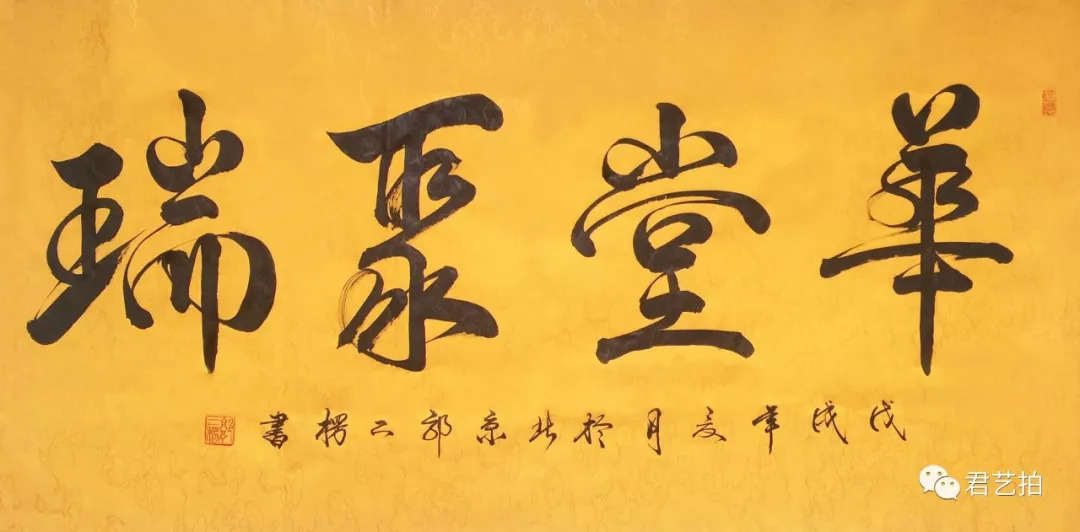 華堂聚瑞
戊戌年夏月於北京郭二楞書
君艺拍